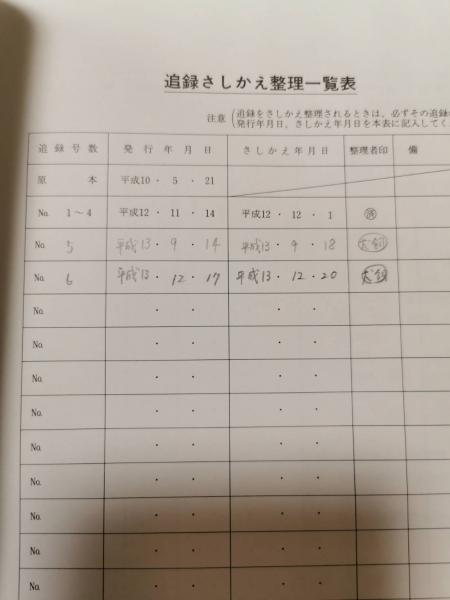 追録さしかえ整理一覧表
注意 (追録をさしかえ整理されるときは、必ずその追録
発行年月日、さしかえ年月日を本表に記入してく
追録号数 発行年月日 さしかえ年月日 整理者印 備
原本 平成10・5・21
No. 1〜4 平成12・11・14 平成12・12・1 済
No. 5 平成13・9・14 平成13・9・18
No. 6 平成13・12・17 平成13・12・20
No. ・・ ・・
No. ・・ ・・
No. ・・ ・・
No. ・・ ・・
No. ・・ ・・
No. ・・ ・・
No. ・・ ・・
No. ・・ ・・
No. ・・ ・・